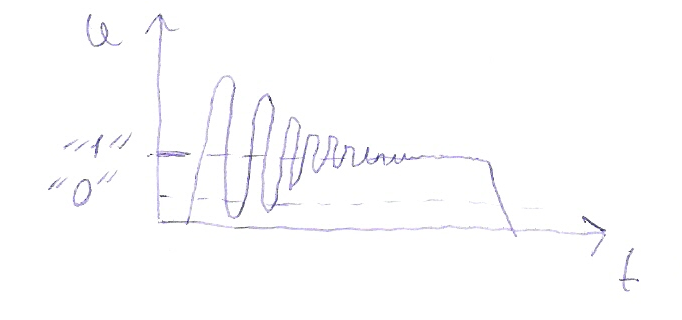 U
"1"
"0"
t